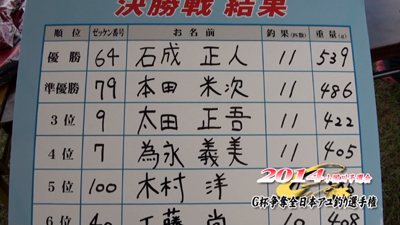 決勝戦 結果
順位 ゼッケン番号 お名前 釣果(匹数) 重量(g)
優勝 64 石成 正人 11 539
準優勝 79 本田 米次 11 486
3位 9 太田 正吾 11 422
4位 7 為永 義美 11 405
5位 100 木村 洋
2014
G杯争奪全日本アユ釣り選手権
工藤 尚 10 408